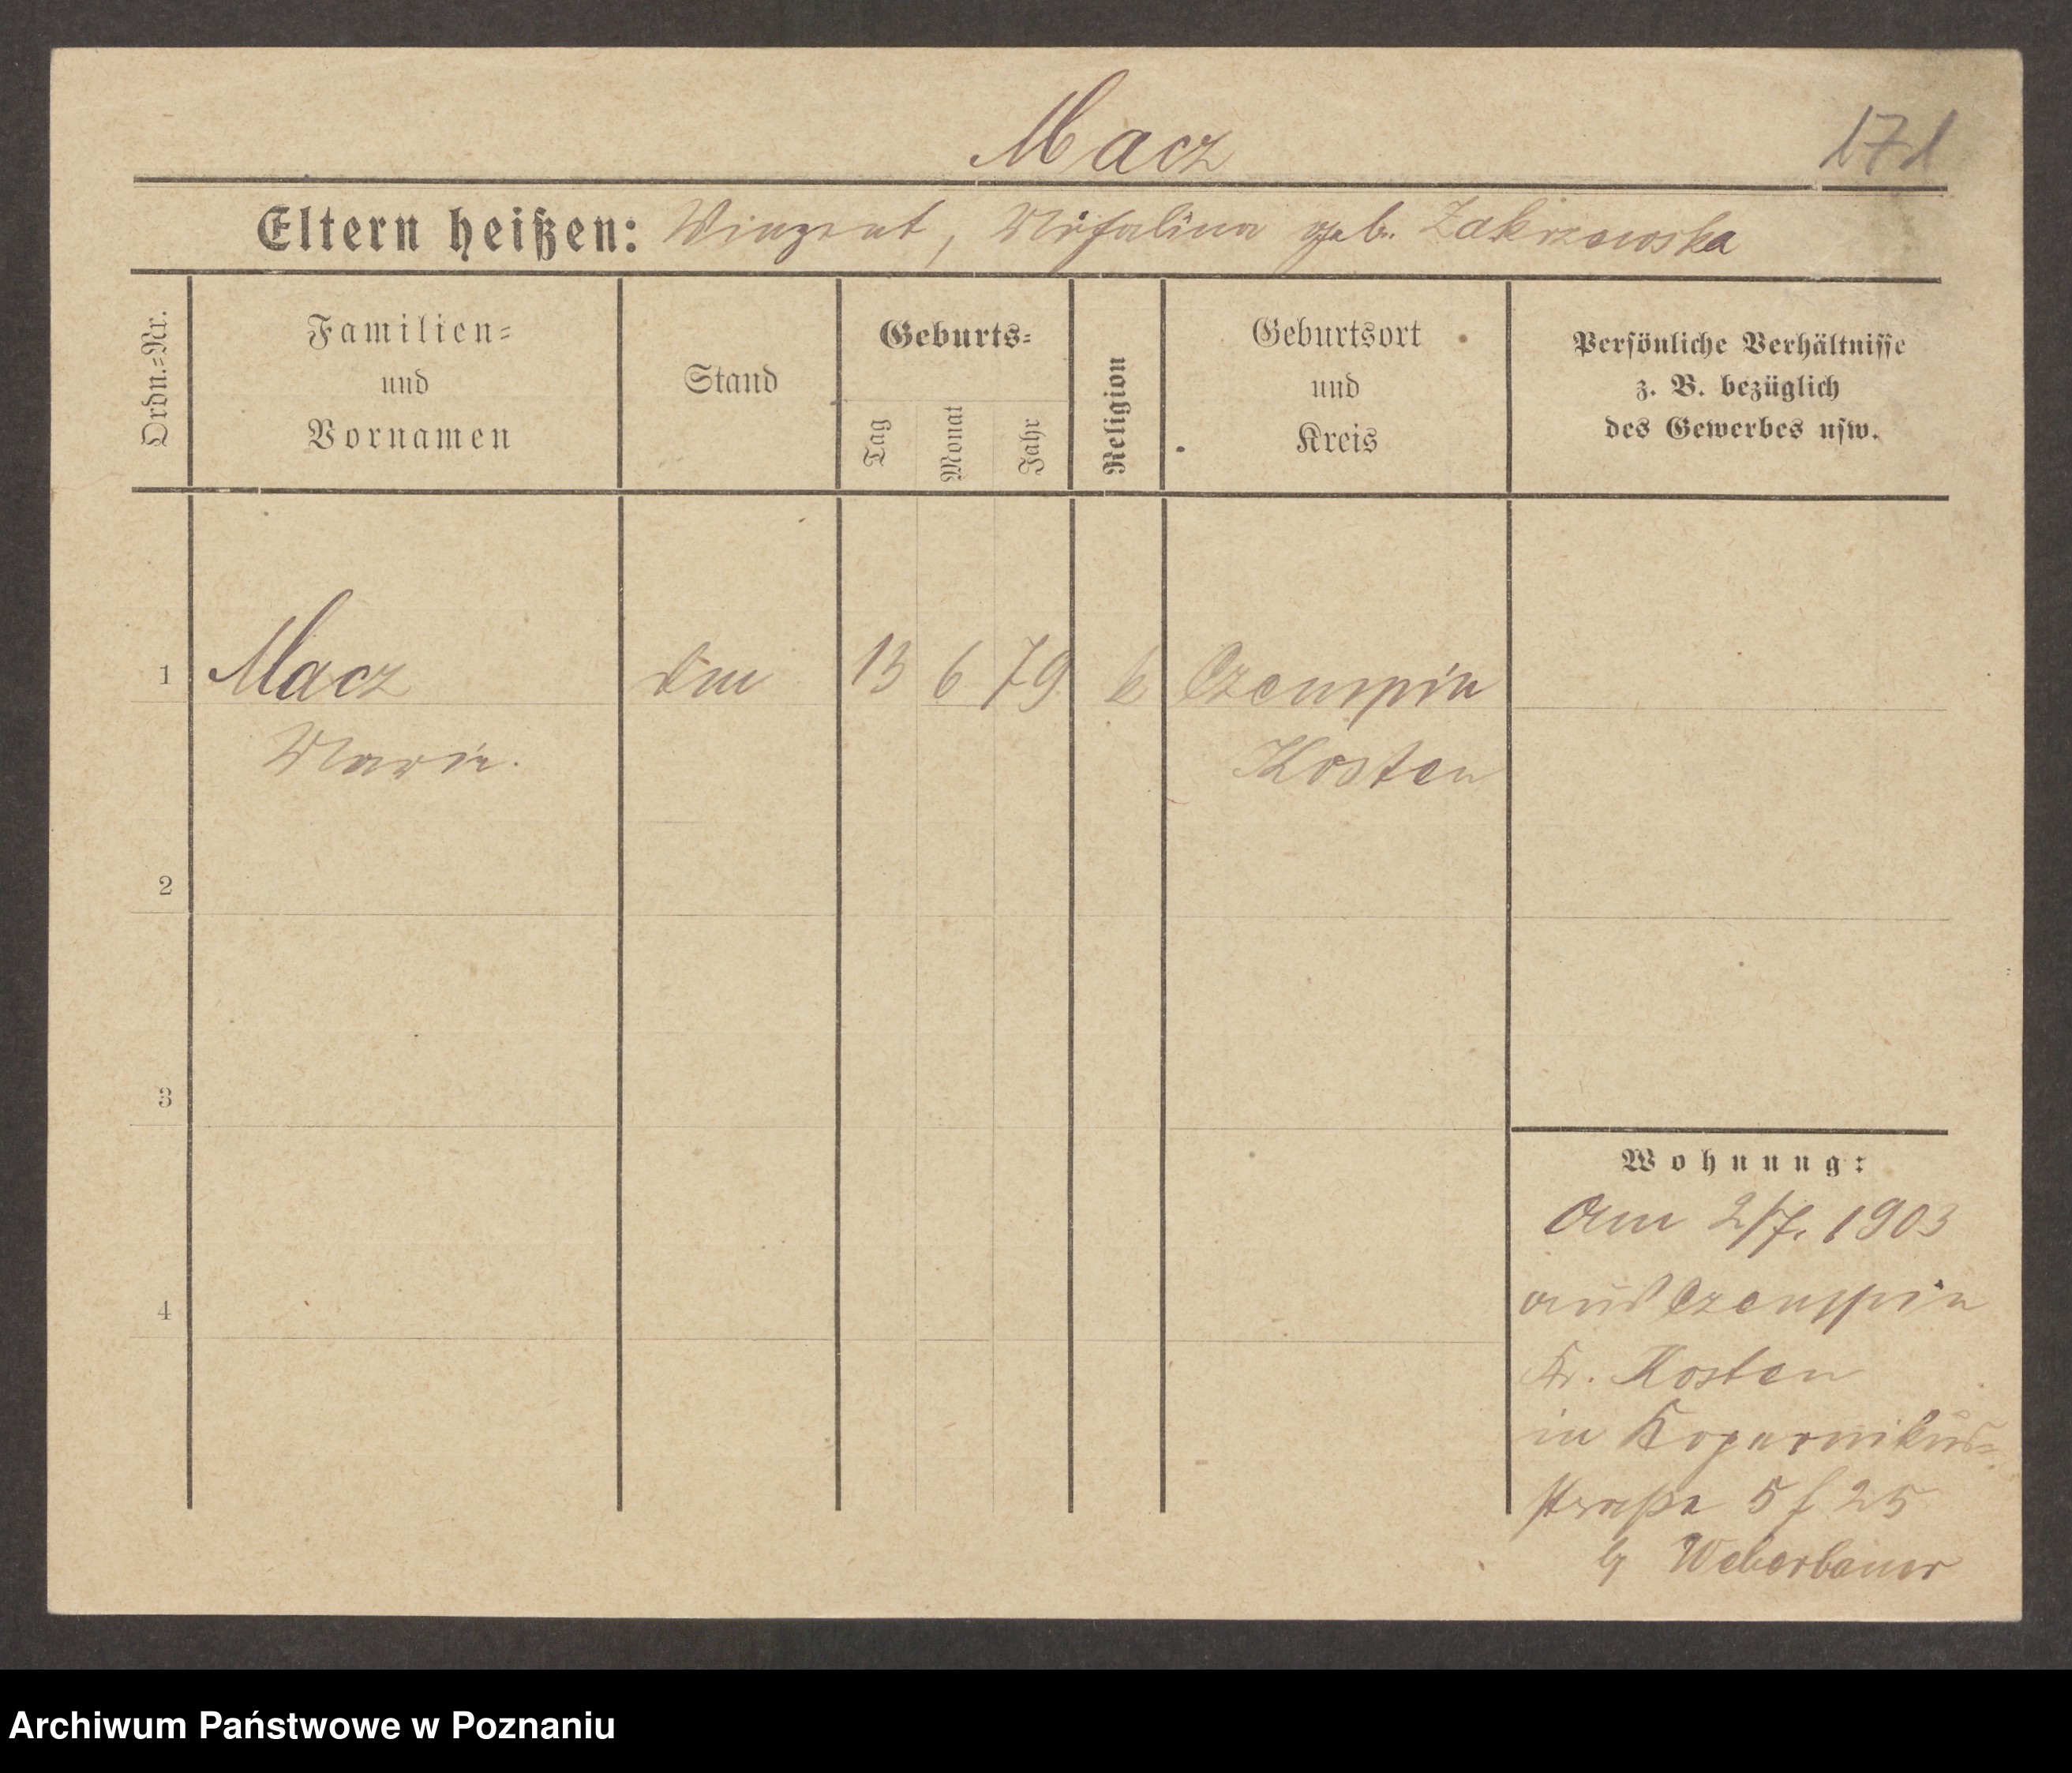 Macz
171
Eltern heißen: Vinzent, Michalina geb. Zakrzewska
Ordn.=Nr.
Familien=
und
Vornamen
Stand
Geburts=
Tag
Monat
Jahr
Religion
Geburtsort
und
Kreis
Persönliche Verhältnisse
z. B. bezüglich
des Gewerbes usw.
1 Macz 13 6 79 k Czempin
Marie. Kosten
2
3
4
Wohnung:
Am 2/7. 1903
aus Czempin
Kr. Kosten
in Kopernikus=
straße 5 f 25
Weberbauer
Archiwum Państwowe w Poznaniu